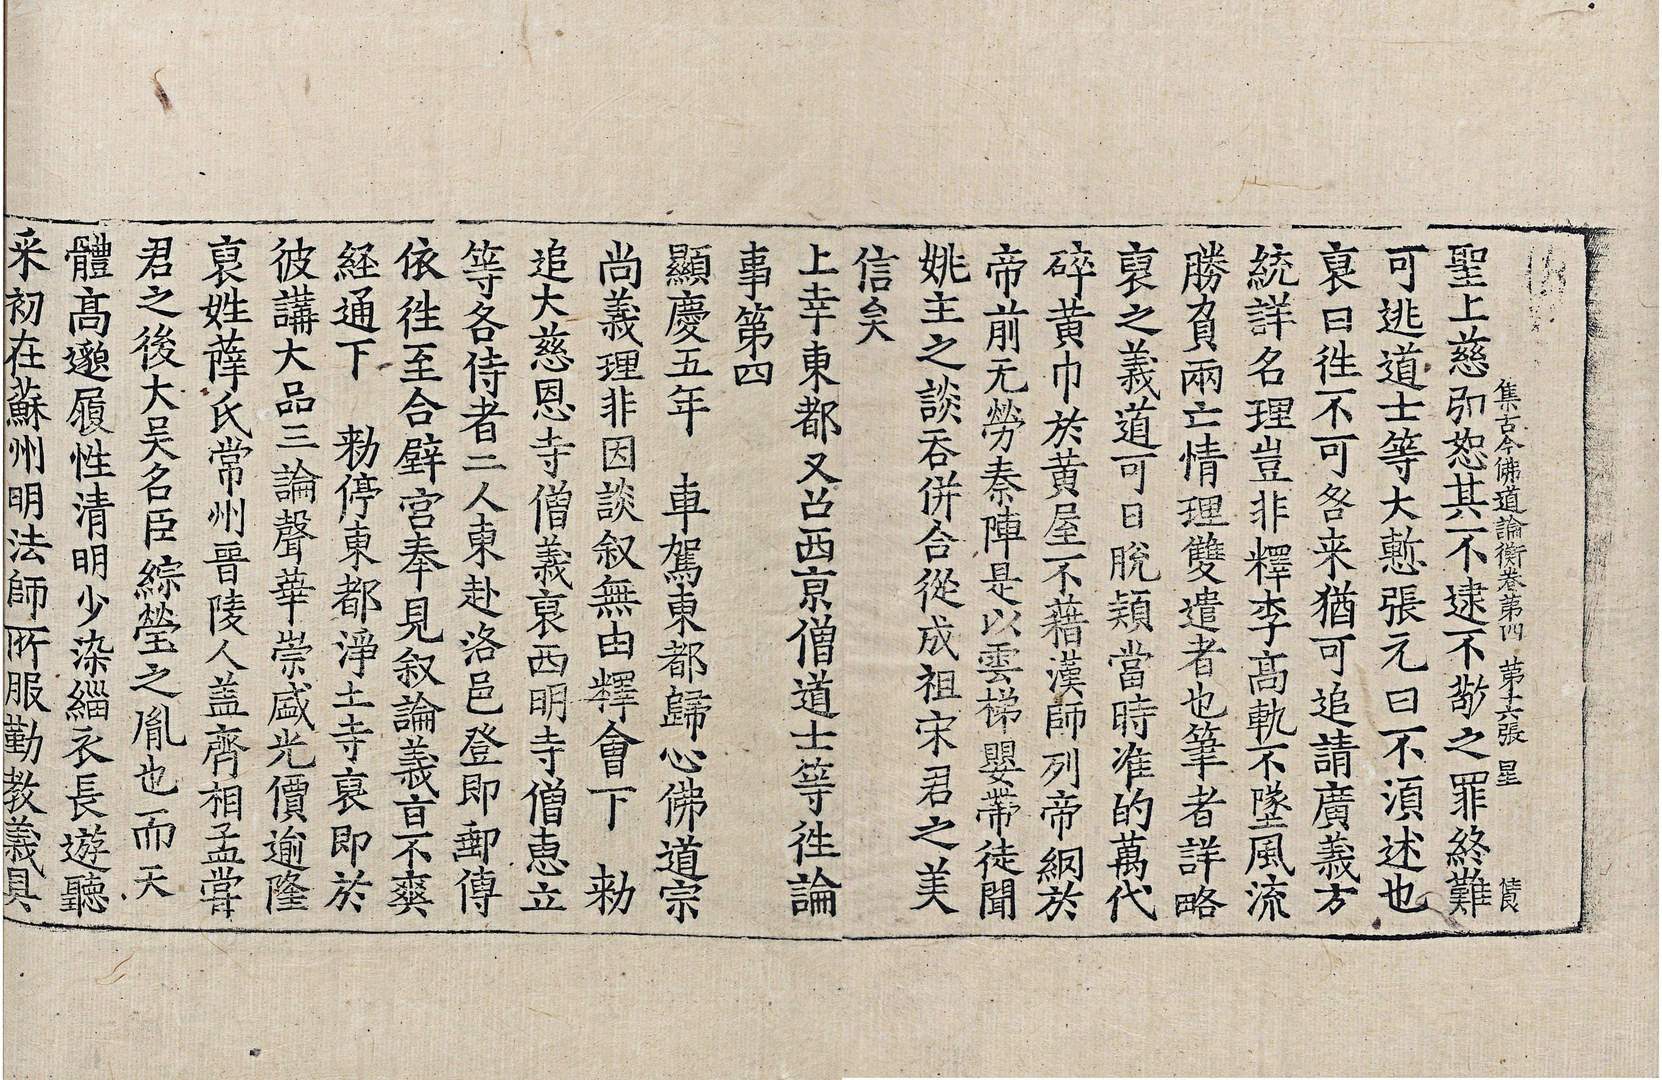 集古今佛道論衡卷第四 第十六張 星
聖上慈弘恕其不逮不敬之罪終難
可逃道士等大慙張元曰不湏述也
裒曰徃不可咎来猶可追請廣義方
統詳名理豈非釋李髙軌不墜風流
勝負兩亡情理雙遣者也筆者詳略
裒之義道可曰脫穎當時准的萬代
碎黄巾於黄屋不藉漢師列帝網於
帝前无勞秦陣是以雲梯嬰帶徒聞
姚主之談吞併合從成祖宋君之美
信矣
上幸東都又召西京僧道士等徃論
事第四
顯慶五年 車駕東都歸心佛道宗
尚義理非因談叙無由釋會下 勑
追大慈恩寺僧義裒西明寺僧惠立
等各侍者二人東赴洛邑登即郵傳
依徃至合璧宫奉見叙論義旨不爽
經通下 勑停東都淨土寺裒即於
彼講大品三論聲華崇盛光價逾隆
裒姓薛氏常州晉陵人盖齊相孟甞
君之後大吴名臣綜瑩之胤也而天
體髙邈履性清明少染緇衣長遊聽
采初在蘇州明法師所服勤教義具